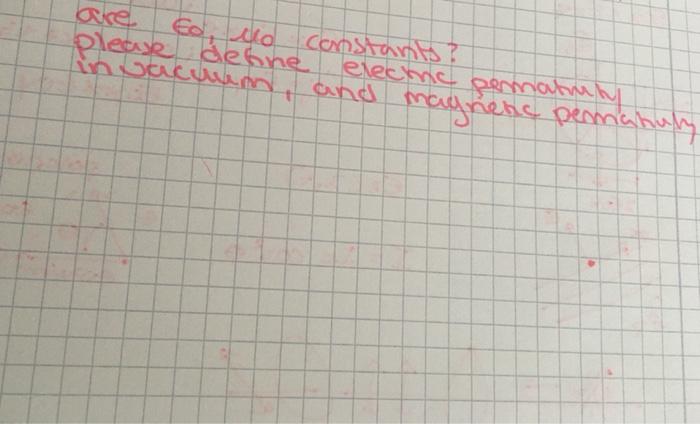 are ϵ0, μ0 constants?
please define electric permativity
in vacuum, and magnetic permativity